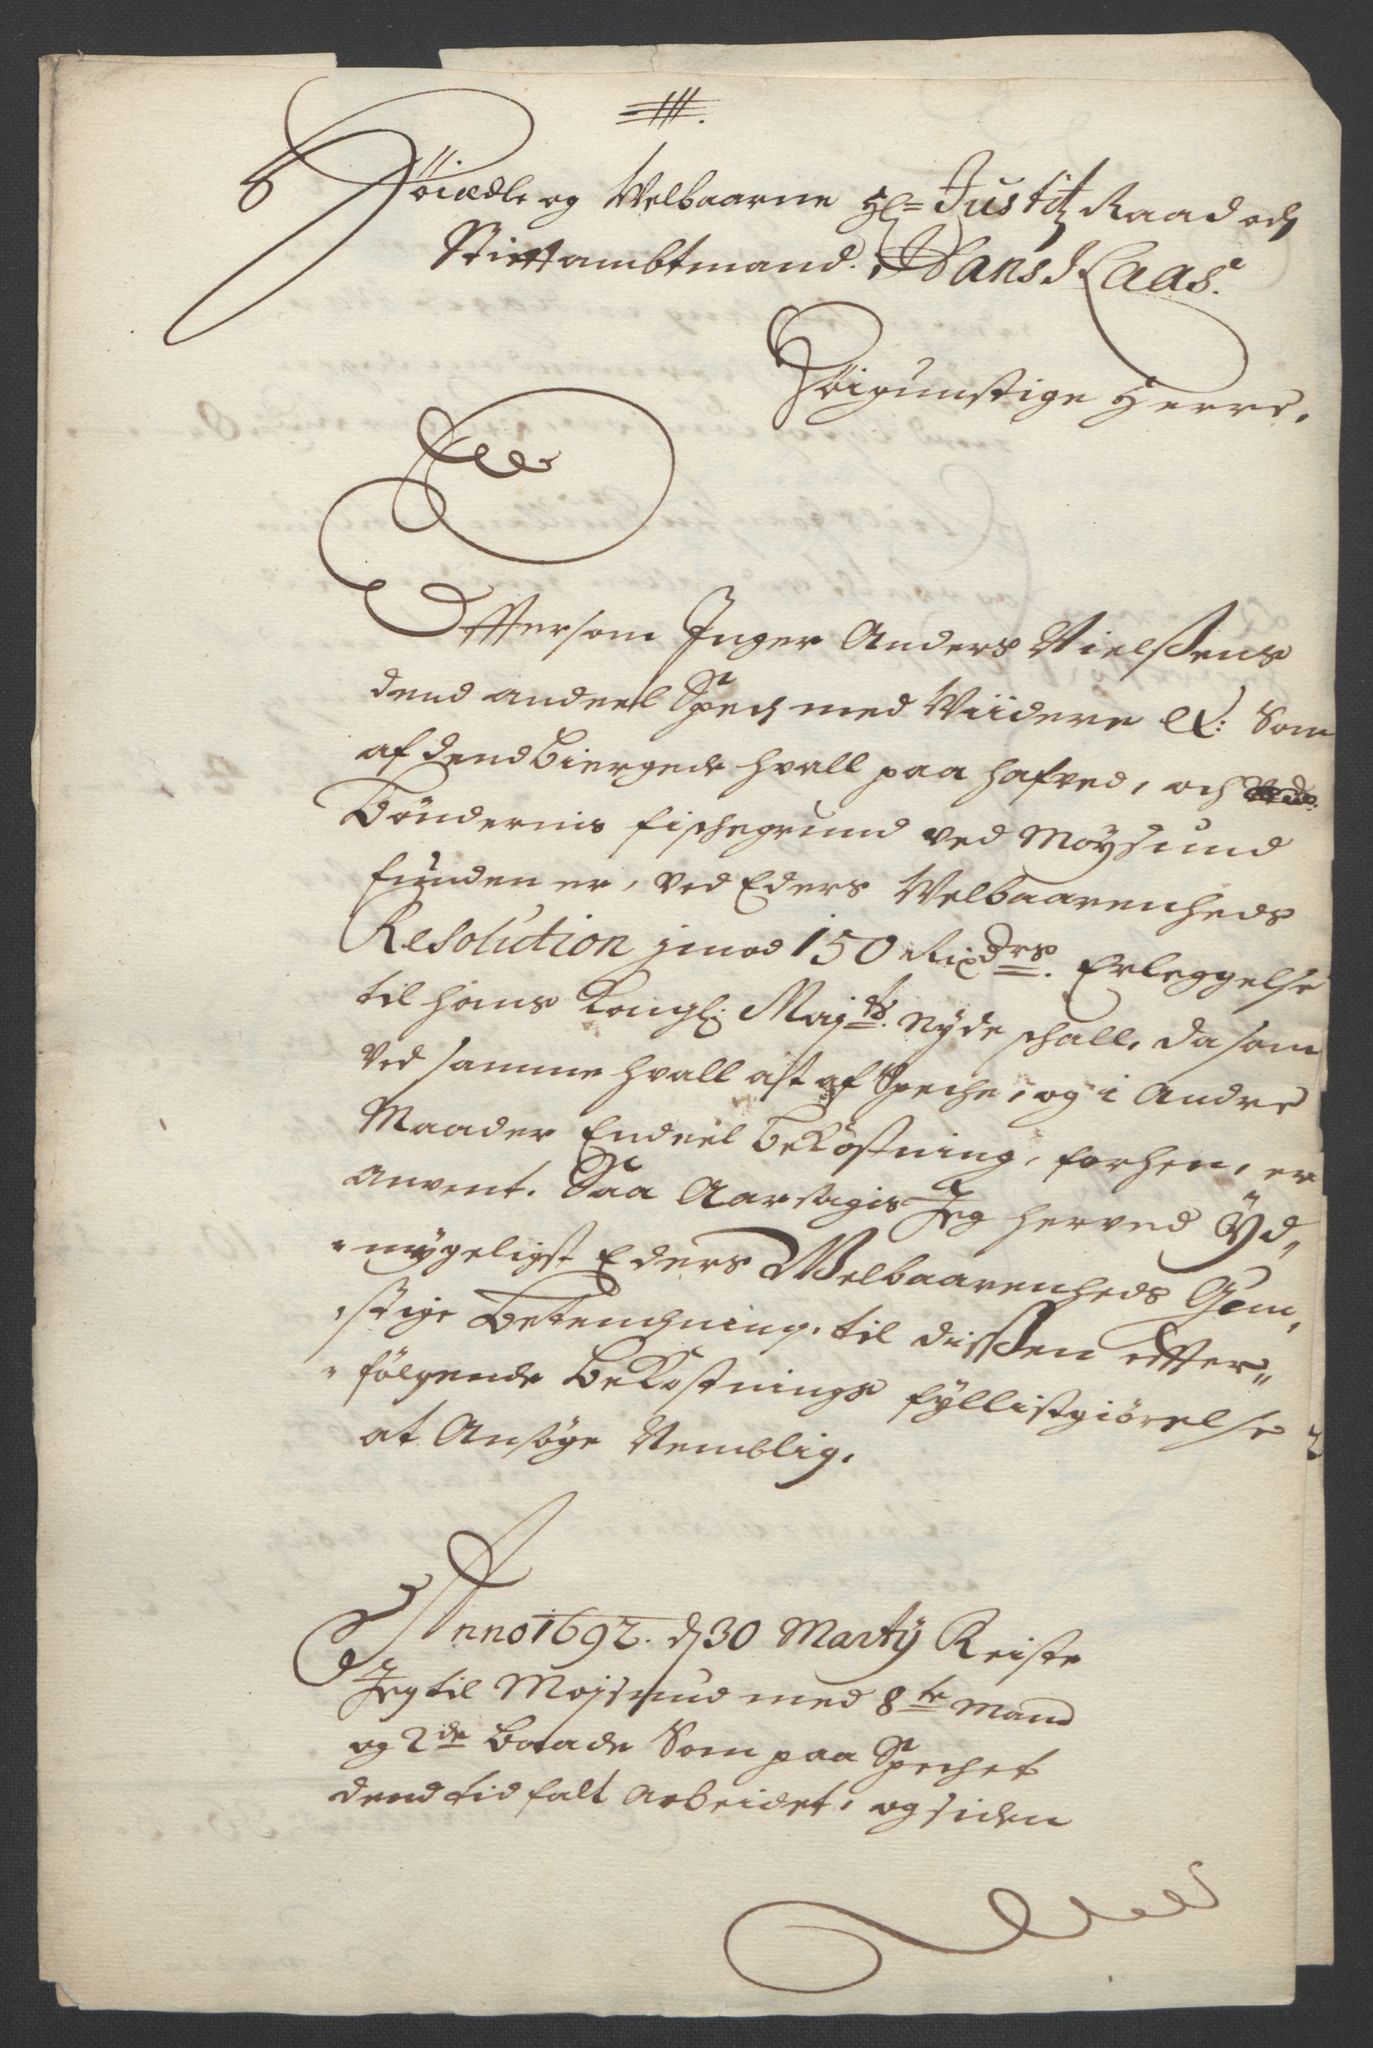 Höiædle og Welbaarne Hr= Justitz Raad och
Stiftambtmand. Hans Kaas.
Höigunstige Herre.
Efftersom Inger Anders Nielssens
dend andeel Spech med Viidere etc: Som
af dend biergede hvall paa hafved, och
böndernis fischegrund ved Möysund
funden er, ved Eders Welbaarenheds
Resolution imod 150 Rixdrs. Erleggelse
til hans Kongl: Majts. nyde schall, da som
ved samme hvall at af Speche, og i Andre
Maader Endeel bekostning, forhen, er
anvent. Saa Aarsagis Jeg herved Öÿd„
„mygeligst Eders Welbaarenheds Gun„
„stige betenchning, til dissen effter„
„fölgende bekostnings fyllistgiörelse
at Ansöge Nemblig.
Anno 1692. d 30 Martÿ Reiste
Jeg til Mojsund med 8te Mand
og 2de baade Som paa Spechet
dend tid falt arbeidet, og siden